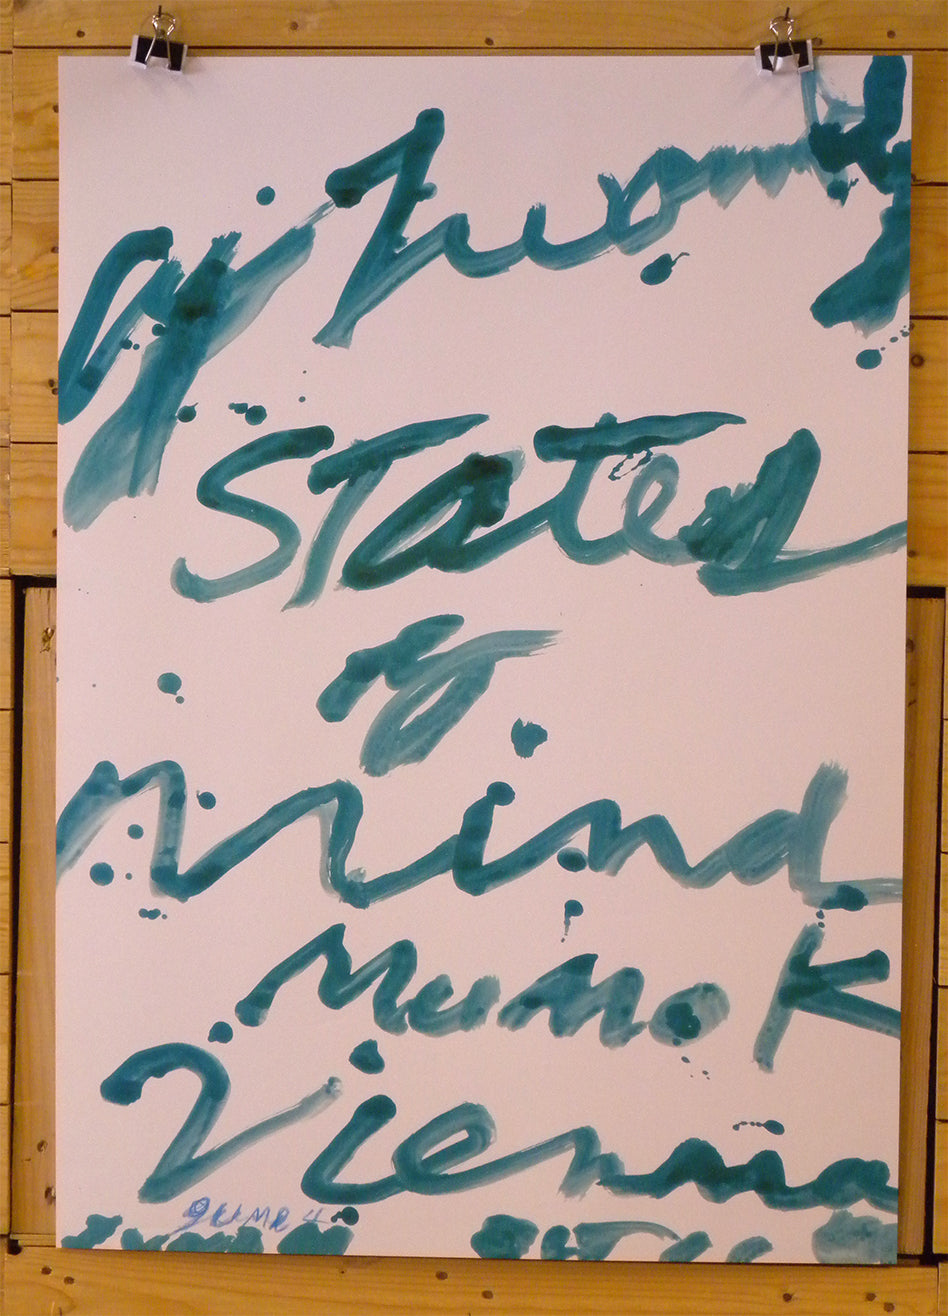 Cy Twombly
States
of
Mind
MuMoK
Vienna